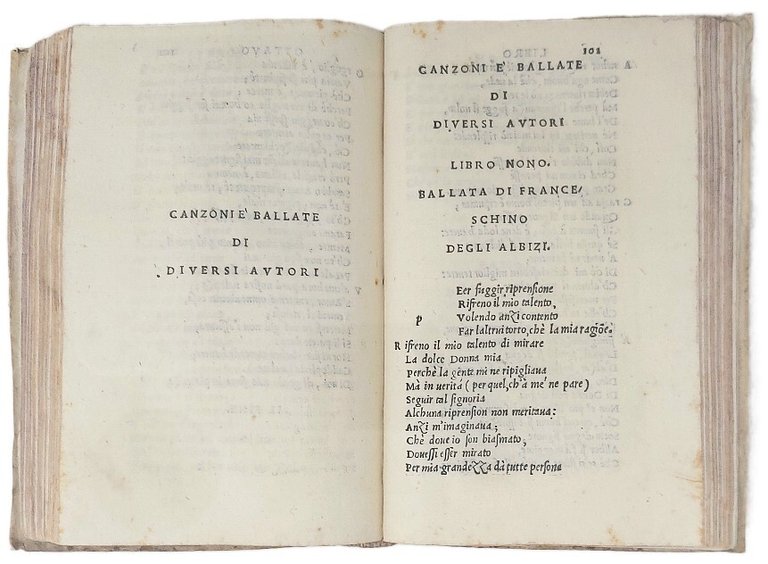 CANZONI E' BALLATE
DI
DIVERSI AVTORI
101
CANZONI E' BALLATE
DI
DIVERSI AVTORI
LIBRO NONO.
BALLATA DI FRANCE/
SCHINO
DEGLI ALBIZI.
P
Eer fuggir riprensione
Rifreno il mio talento,
Volendo anzi contento
Far laltrui torto, chè la mia ragiõe.
Rifreno il mio talento di mirare
La dolce Donna mia
Perchè la gente mi ne ripigliaua
Mà in ueritá (per quel, ch'á me' ne pare)
Seguir tal signoria
Alchuna riprension non meritaua:
Anzi m'imaginaua;
Chè doue io son biasmato,
Douessi esser mirato
Per mia grandezza dà tutte persone